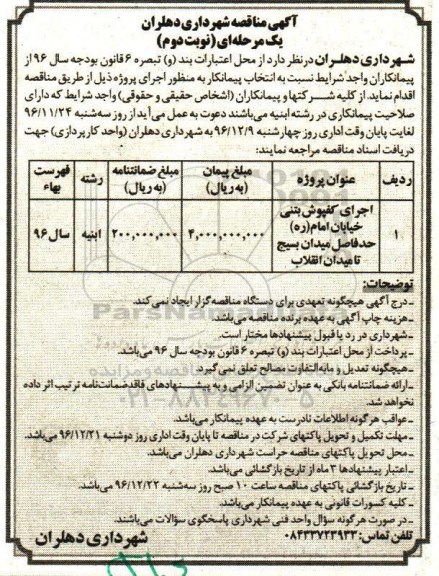 آگهی مناقصه شهرداری دهلران
یک مرحله‌ای (نوبت دوم)
شهرداری دهلـران درنظر دارد از محل اعتبارات بند (و) تبصره ۶ قانون بودجه سال ۹۶ از
پیمانکاران واجد شرایط نسبت به انتخاب پیمانکار به منظور اجرای پروژه ذیل از طریق مناقصه
اقدام نماید. از کلیه شرکتها و پیمانکاران (اشخاص حقیقی و حقوقی) واجد شرایط که دارای
صلاحیت پیمانکاری در رشته ابنیه می‌باشند دعوت به عمل می‌آید از روز سه‌شنبه ۹۶/۱۱/۲۴
لغایت پایان وقت اداری روز چهارشنبه ۹۶/۱۲/۹ به شهرداری دهلران (واحد کارپردازی) جهت
دریافت اسناد مناقصه مراجعه نمایند:
ردیف	عنوان پروژه	مبلغ پیمان (به ریال)	مبلغ ضمانتنامه (به ریال)	رشته	فهرست بهاء
۱	اجرای کفپوش بتنی خیابان امام(ره) حدفاصل میدان بسیج تا میدان انقلاب	۴,۰۰۰,۰۰۰,۰۰۰	۲۰۰,۰۰۰,۰۰۰	ابنیه	سال ۹۶
توضیحات:
ـ درج آگهی هیچگونه تعهدی برای دستگاه مناقصه‌گزار ایجاد نمی‌کند.
ـ هزینه چاپ آگهی به عهده برنده مناقصه می‌باشد.
ـ شهرداری در رد یا قبول پیشنهادها مختار است.
ـ پرداخت از محل اعتبارات بند (و) تبصره ۶ قانون بودجه سال ۹۶ می‌باشد.
ـ هیچگونه تعدیل و مابه‌التفاوت مصالح تعلق نمی‌گیرد.
ـ ارائه ضمانتنامه بانکی به عنوان تضمین الزامی و به پیشنهادهای فاقد ضمانت‌نامه ترتیب اثر داده
نخواهد شد.
ـ عواقب هرگونه اطلاعات نادرست به عهده پیمانکار می‌باشد.
ـ مهلت تکمیل و تحویل پاکتهای شرکت در مناقصه تا پایان وقت اداری روز دوشنبه ۹۶/۱۲/۲۱ می‌باشد.
ـ محل تحویل پاکتهای مناقصه حراست شهرداری دهلران می‌باشد.
ـ اعتبار پیشنهادها ۳ ماه از تاریخ بازگشائی می‌باشد.
ـ تاریخ بازگشائی پاکتهای مناقصه ساعت ۱۰ صبح روز سه‌شنبه ۹۶/۱۲/۲۲ می‌باشد.
ـ کلیه کسورات قانونی به عهده پیمانکار می‌باشد.
ـ در صورت هرگونه سؤال واحد فنی شهرداری پاسخگوی سؤالات می‌باشند.
تلفن تماس: ۰۸۴۳۳۷۲۳۹۳۳
شهرداری دهلران